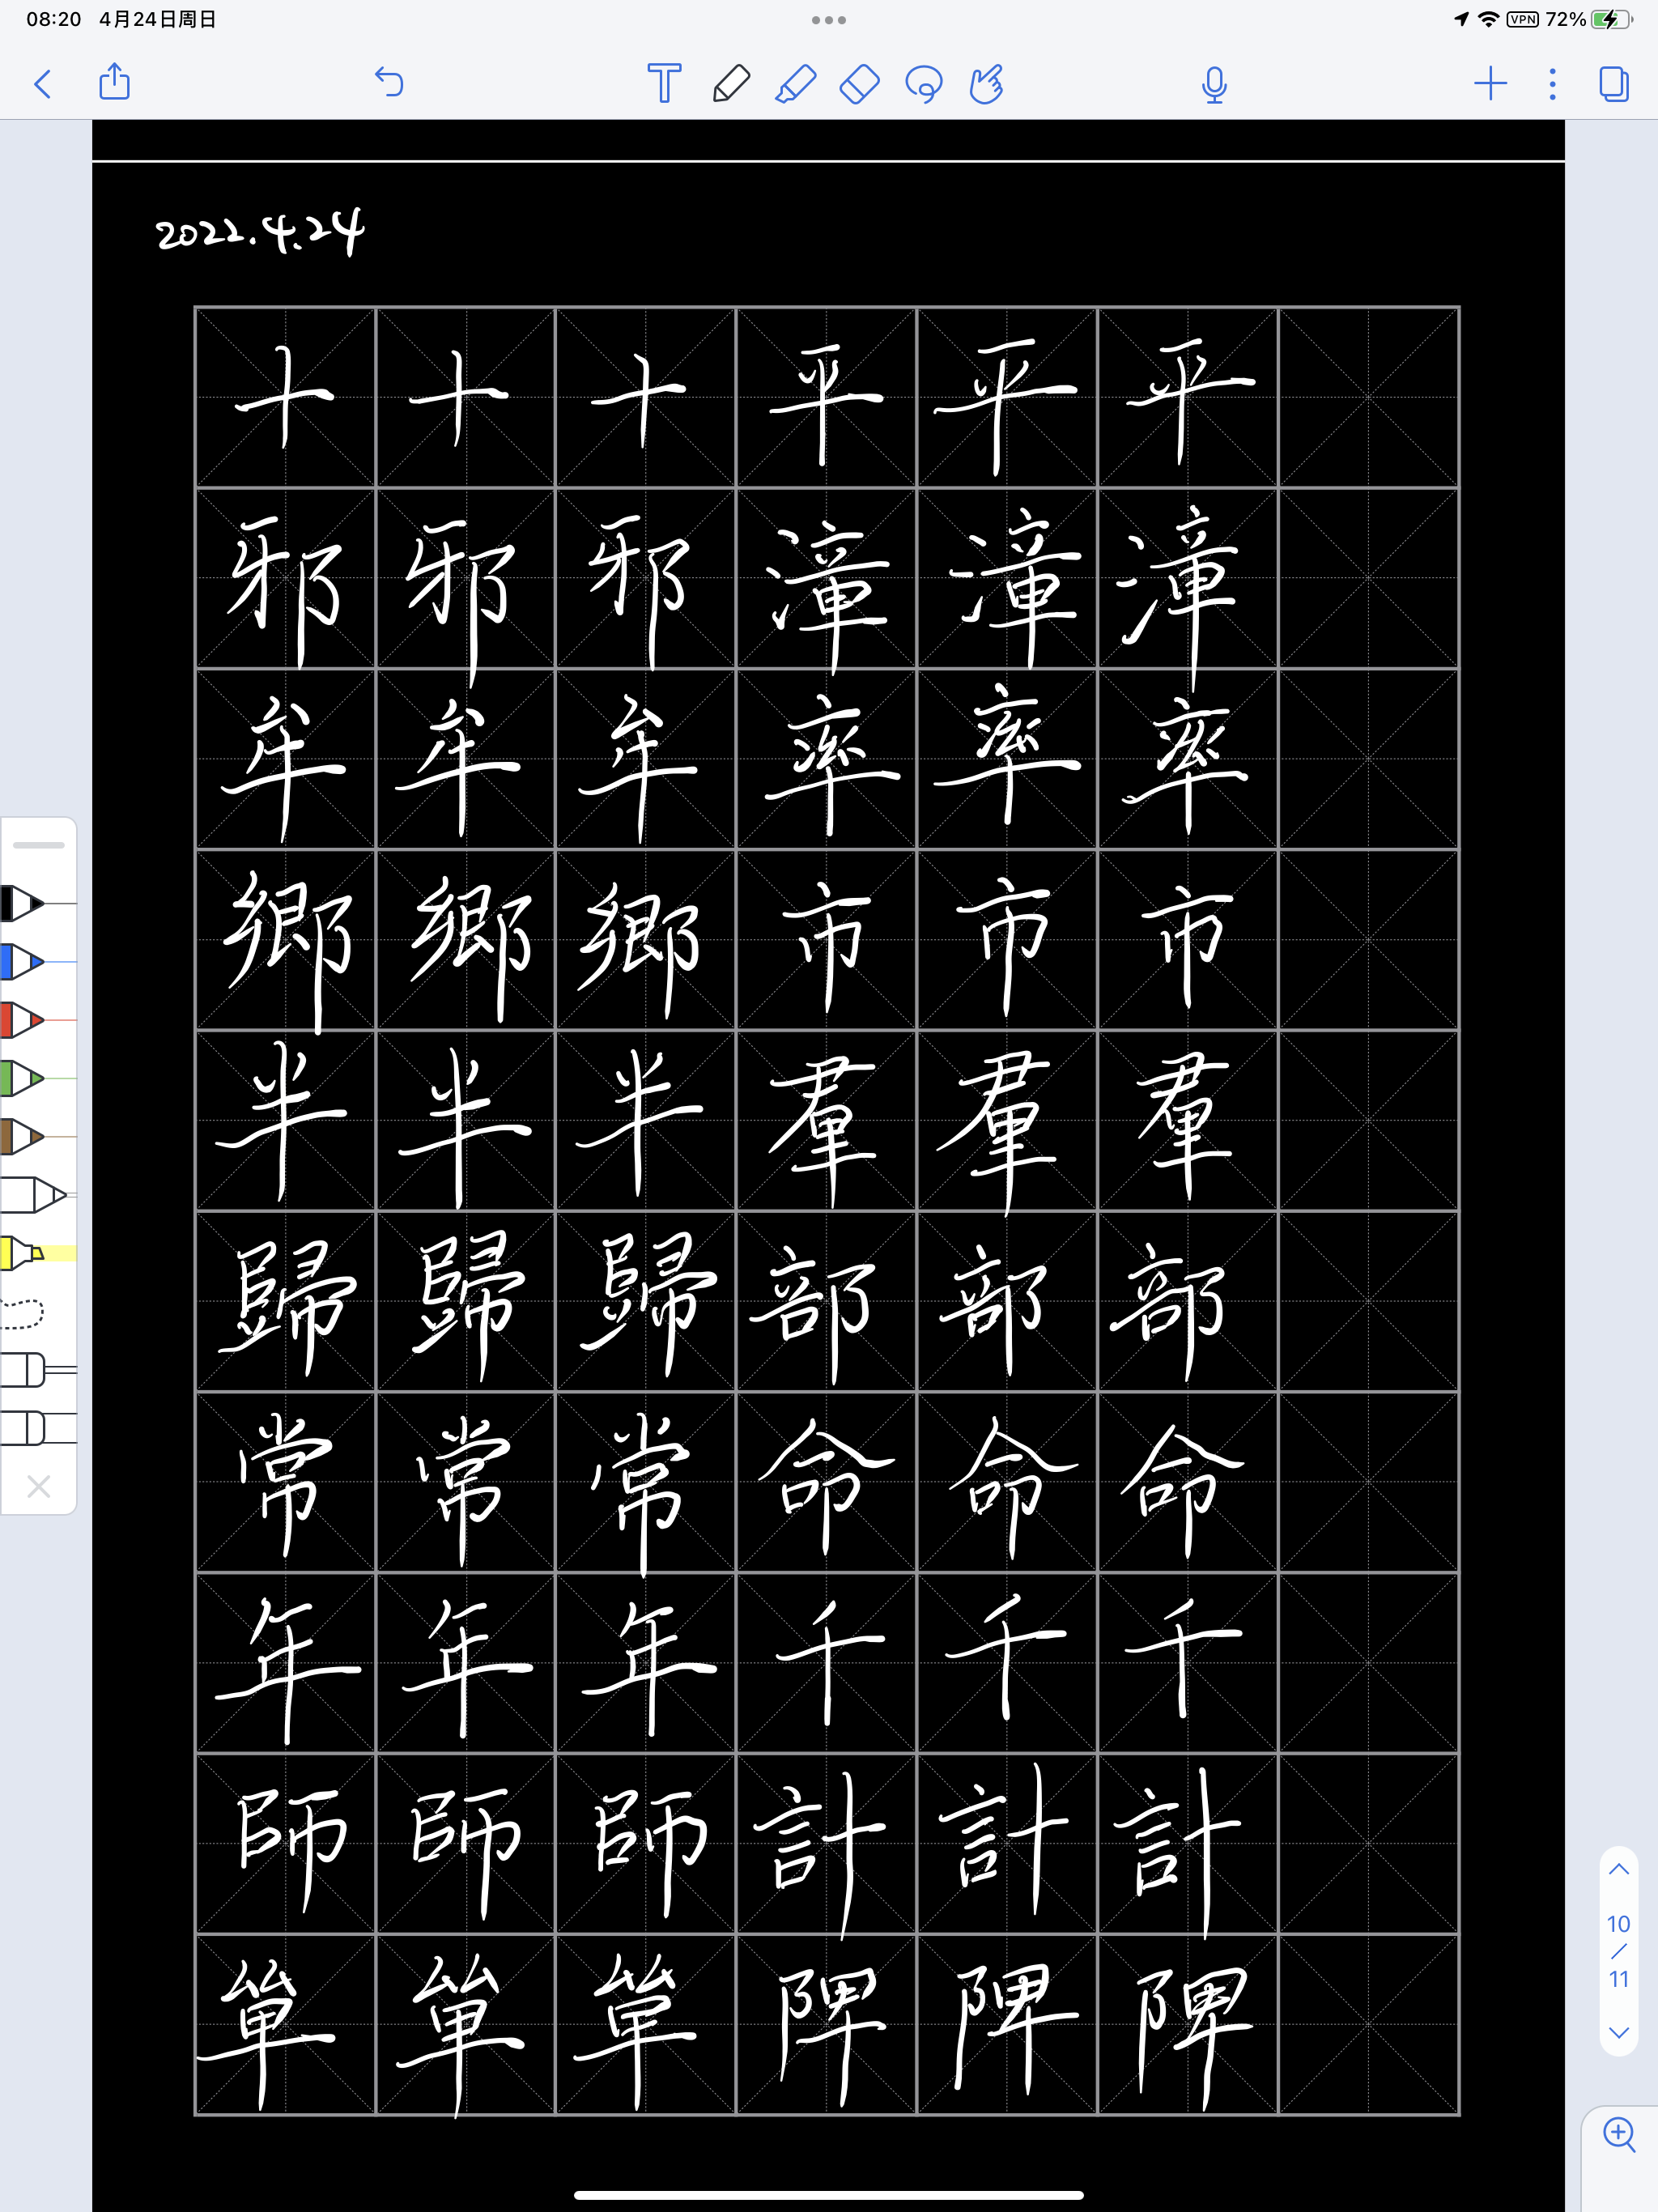 08:20 4月24日周日 VPN 72%
2022.4.24
十十十平平平
邪邪邪漳漳漳
牟牟牟率率率
鄉鄉鄉市市市
半半半羣羣羣
歸歸歸部部部
常常常命命命
年年年千千千
師師師計計計
箄箄箄陴陴陴
10
/
11